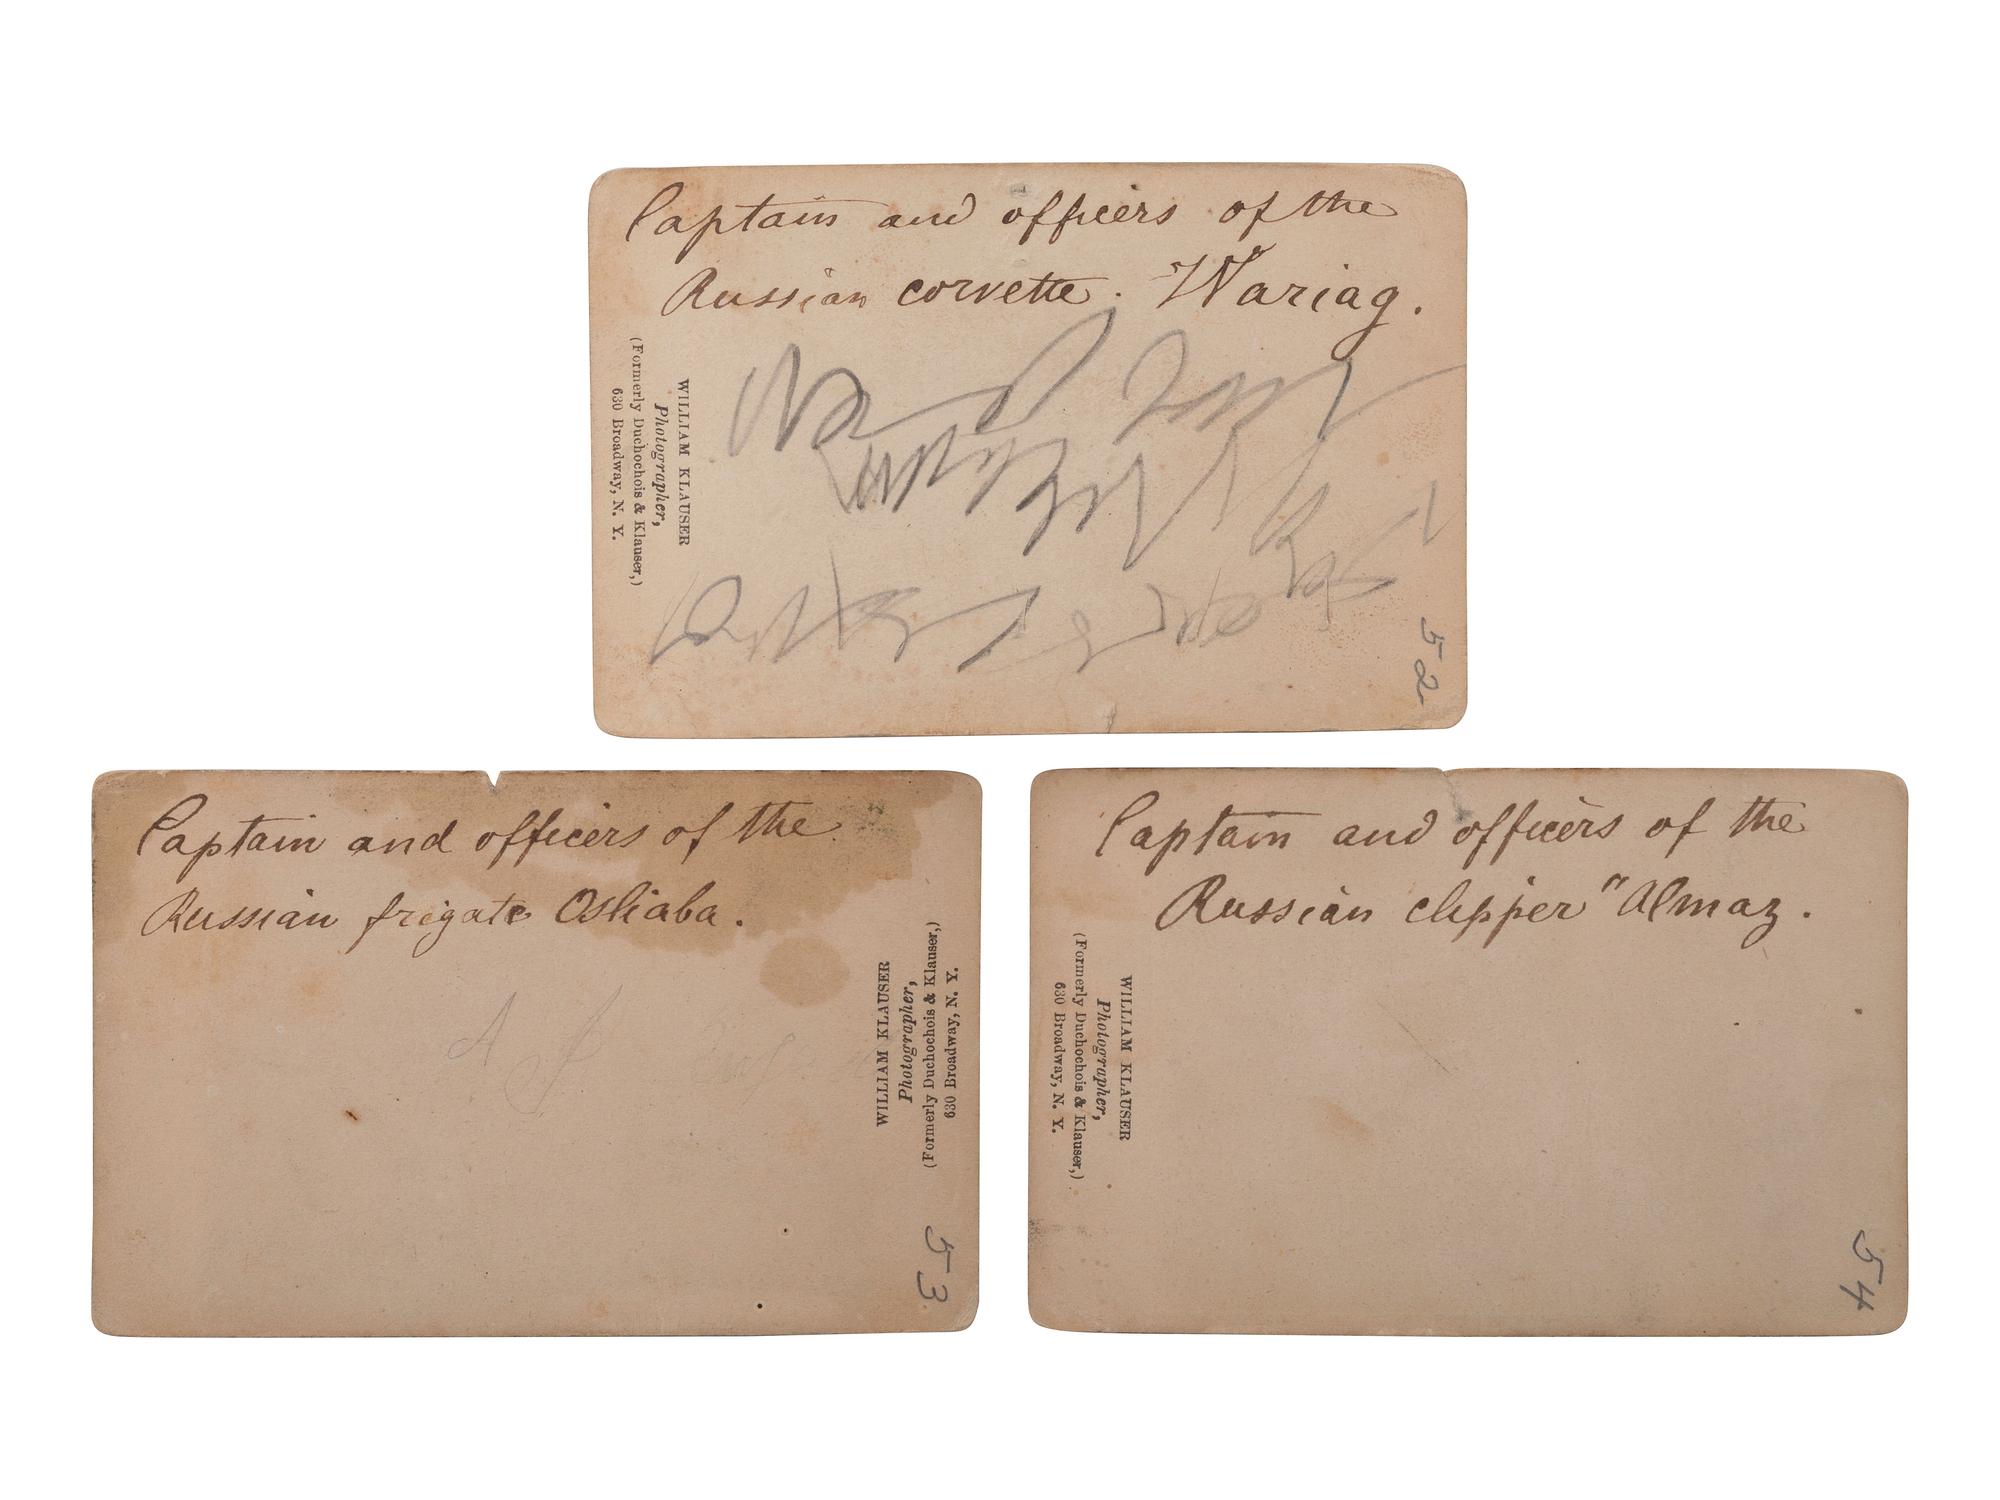 Captain and officers of the
Russian corvette. Wariag.
WILLIAM KLAUSER
Photographer,
(Formerly Duchochois & Klauser,)
630 Broadway, N. Y.
52
Captain and officers of the
Russian frigate Osliaba.
WILLIAM KLAUSER
Photographer,
(Formerly Duchochois & Klauser,)
630 Broadway, N. Y.
53
Captain and officers of the
Russian clipper "Almaz.
WILLIAM KLAUSER
Photographer,
(Formerly Duchochois & Klauser,)
630 Broadway, N. Y.
54